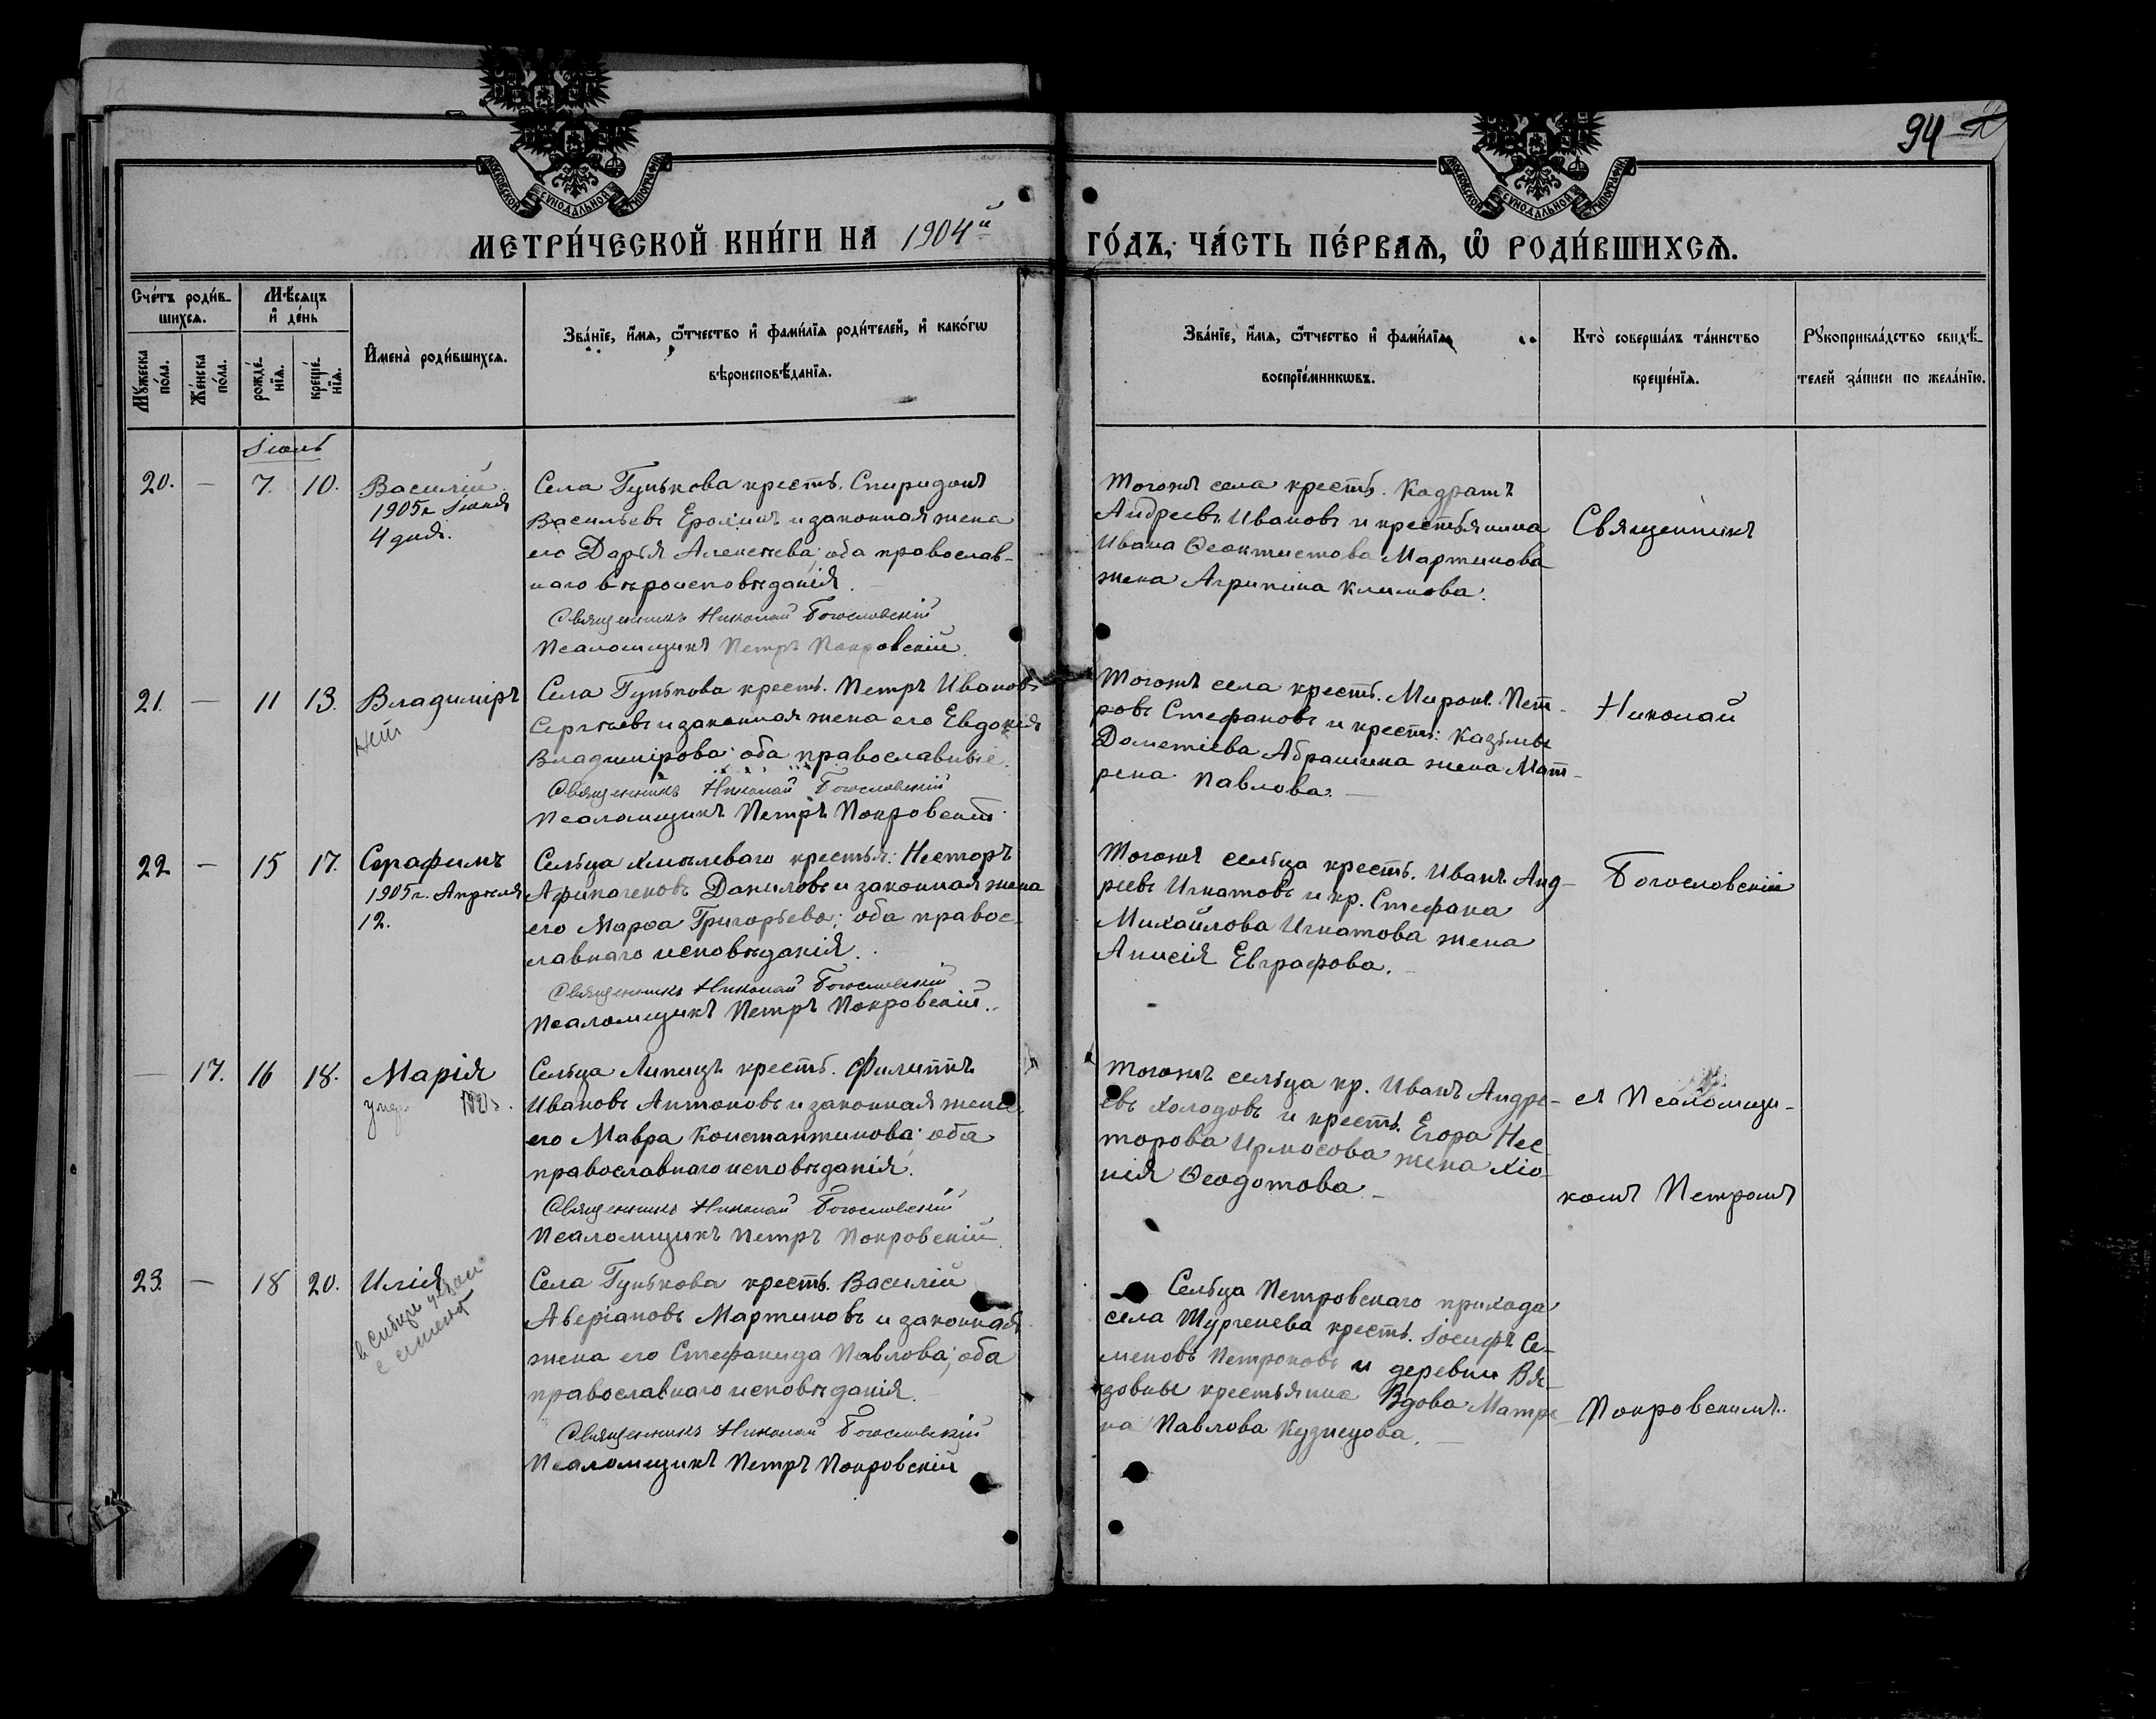 94
МОСКОВСКОЙ СѴНОДАЛЬНОЙ ТИПОГРАФІИ
МОСКОВСКОЙ СѴНОДАЛЬНОЙ ТИПОГРАФІИ
МЕТРИ́ЧЕСКОЙ КНИ́ГИ НА 1904й ГО́ДЪ, ЧА́СТЬ ПЕ́РВАѦ, Ѿ РОДИ́ВШИХСѦ.
Сче́тъ роди́в-
шихсѧ.
Мѣ́сѧцъ
и҆ де́нь
Мꙋ́жеска по́ла.
Же́нска по́ла.
рожде́-
нїѧ.
креще́-
нїѧ.
И҆мена̀ роди́вшихсѧ.
Зва́нїе, и҆́мѧ, ѻ҆́тчество и҆ фами́лїѧ роди́телей, и҆ како́гѡ
вѣроисповѣ́данїѧ.
Зва́нїе, и҆́мѧ, ѻ҆́тчество и҆ фами́лїѧ
воспрїе́мникѡвъ.
Кто̀ соверша́лъ та́инство
креще́нїѧ.
Рꙋкоприкла́дство свидѣ́-
телей за́писи по жела́нїю.
Іюль
20. — 7. 10.
Василій
1905 г. Іюня
4 дня.
Села Гунькова крестья. Спиридонъ
Васильевъ Ерохинъ и законная жена
его Дарья Алексѣева; оба православ-
наго вѣроисповѣданія.
Священникъ Николай Богословскій
Псаломщикъ Петръ Покровскій.
Тогоже села крестья. Кадратъ
Андреевъ Ивановъ и крестьянина
Ивана Ѳеоктистова Мартинова
жена Агрипина Климова.
Священникъ
21. — 11 13.
Владиміръ
Села Гунькова крестья. Петръ Ивановъ
Сергѣевъ и законная жена его Евдокія
Владимірова; оба православные.
Священникъ Николай Богословскій
Псаломщикъ Петръ Покровскій.
Тогоже села крестья. Миронъ Пет-
ровъ Стефановъ и крестья. Казьмы
Дометіева Абрашина жена Мат-
рена Павлова. —
Николай
22 — 15 17.
Серафимъ
1905 г. Апрѣля
12.
Сельца Хмылеваго крестья: Несторъ
Афиногеновъ Даниловъ и законная жена
его Марѳа Григорьева; оба правос-
лавнаго исповѣданія.
Священникъ Николай Богословскій
Псаломщикъ Петръ Покровскій.
Тогоже сельца крестья. Иванъ Анд-
реевъ Игнатовъ и кр. Стефана
Михайлова Игнатова жена
Анисія Евграфова.
Богословскій
— 17. 16 18.
Марія
Сельца Липицъ крестья. Филиппъ
Ивановъ Антоновъ и законная жена
его Мавра Константинова; оба
православнаго исповѣданія.
Священникъ Николай Богословскій
Псаломщикъ Петръ Покровскій
Тогоже сельца кр. Иванъ Андре-
евъ Холодовъ и крестья. Егора Нес-
торова Ирмосова жена Хіо-
нія Ѳеодотова.
съ Псаломщи-
комъ Петромъ
23. — 18 20.
Илія
в Сибирь
Села Гунькова крестья. Василій
Аверіановъ Мартиновъ и законная
жена его Стефанида Павлова; оба
православнаго исповѣданія.
Священникъ Николай Богословскій
Псаломщикъ Петръ Покровскій
Сельца Петровскаго прихода
села Шургенева крестья. Іосифъ Се-
меновъ Петроновъ и деревни Вя-
зовны крестьянка Вдова Матре-
на Павлова Кузнецова. —
Покровскимъ.